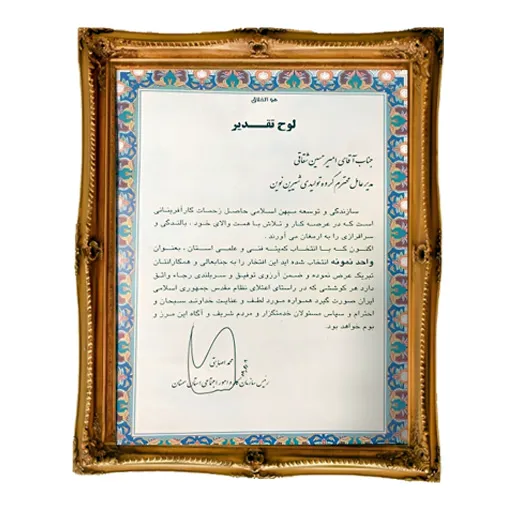 هو الخالق
لوح تقدیر
جناب آقای امیر حسین ثقاتی
مدیر عامل محترم گروه تولیدی شیرین نوین
سازندگی و توسعه میهن اسلامی حاصل زحمات کارآفرینانی
است که در عرصه کار و تلاش با همت والای خود ، بالندگی و
سرافرازی را به ارمغان می آورند .
اکنون که با انتخاب کمیته فنی و علمی استان ، بعنوان
واحد نمونه انتخاب شده اید این افتخار را به جنابعالی و همکارانتان
تبریک عرض نموده و ضمن آرزوی توفیق و سربلندی رجاء واثق
دارد هر کوششی که در راستای اعتلای نظام مقدس جمهوری اسلامی
ایران صورت گیرد همواره مورد لطف و عنایت خداوند سبحان و
احترام و سپاس مسئولان خدمتگزار و مردم شریف و آگاه این مرز و
بوم خواهد بود.
محمد
رئیس سازمان کار و امور اجتماعی استان سمنان